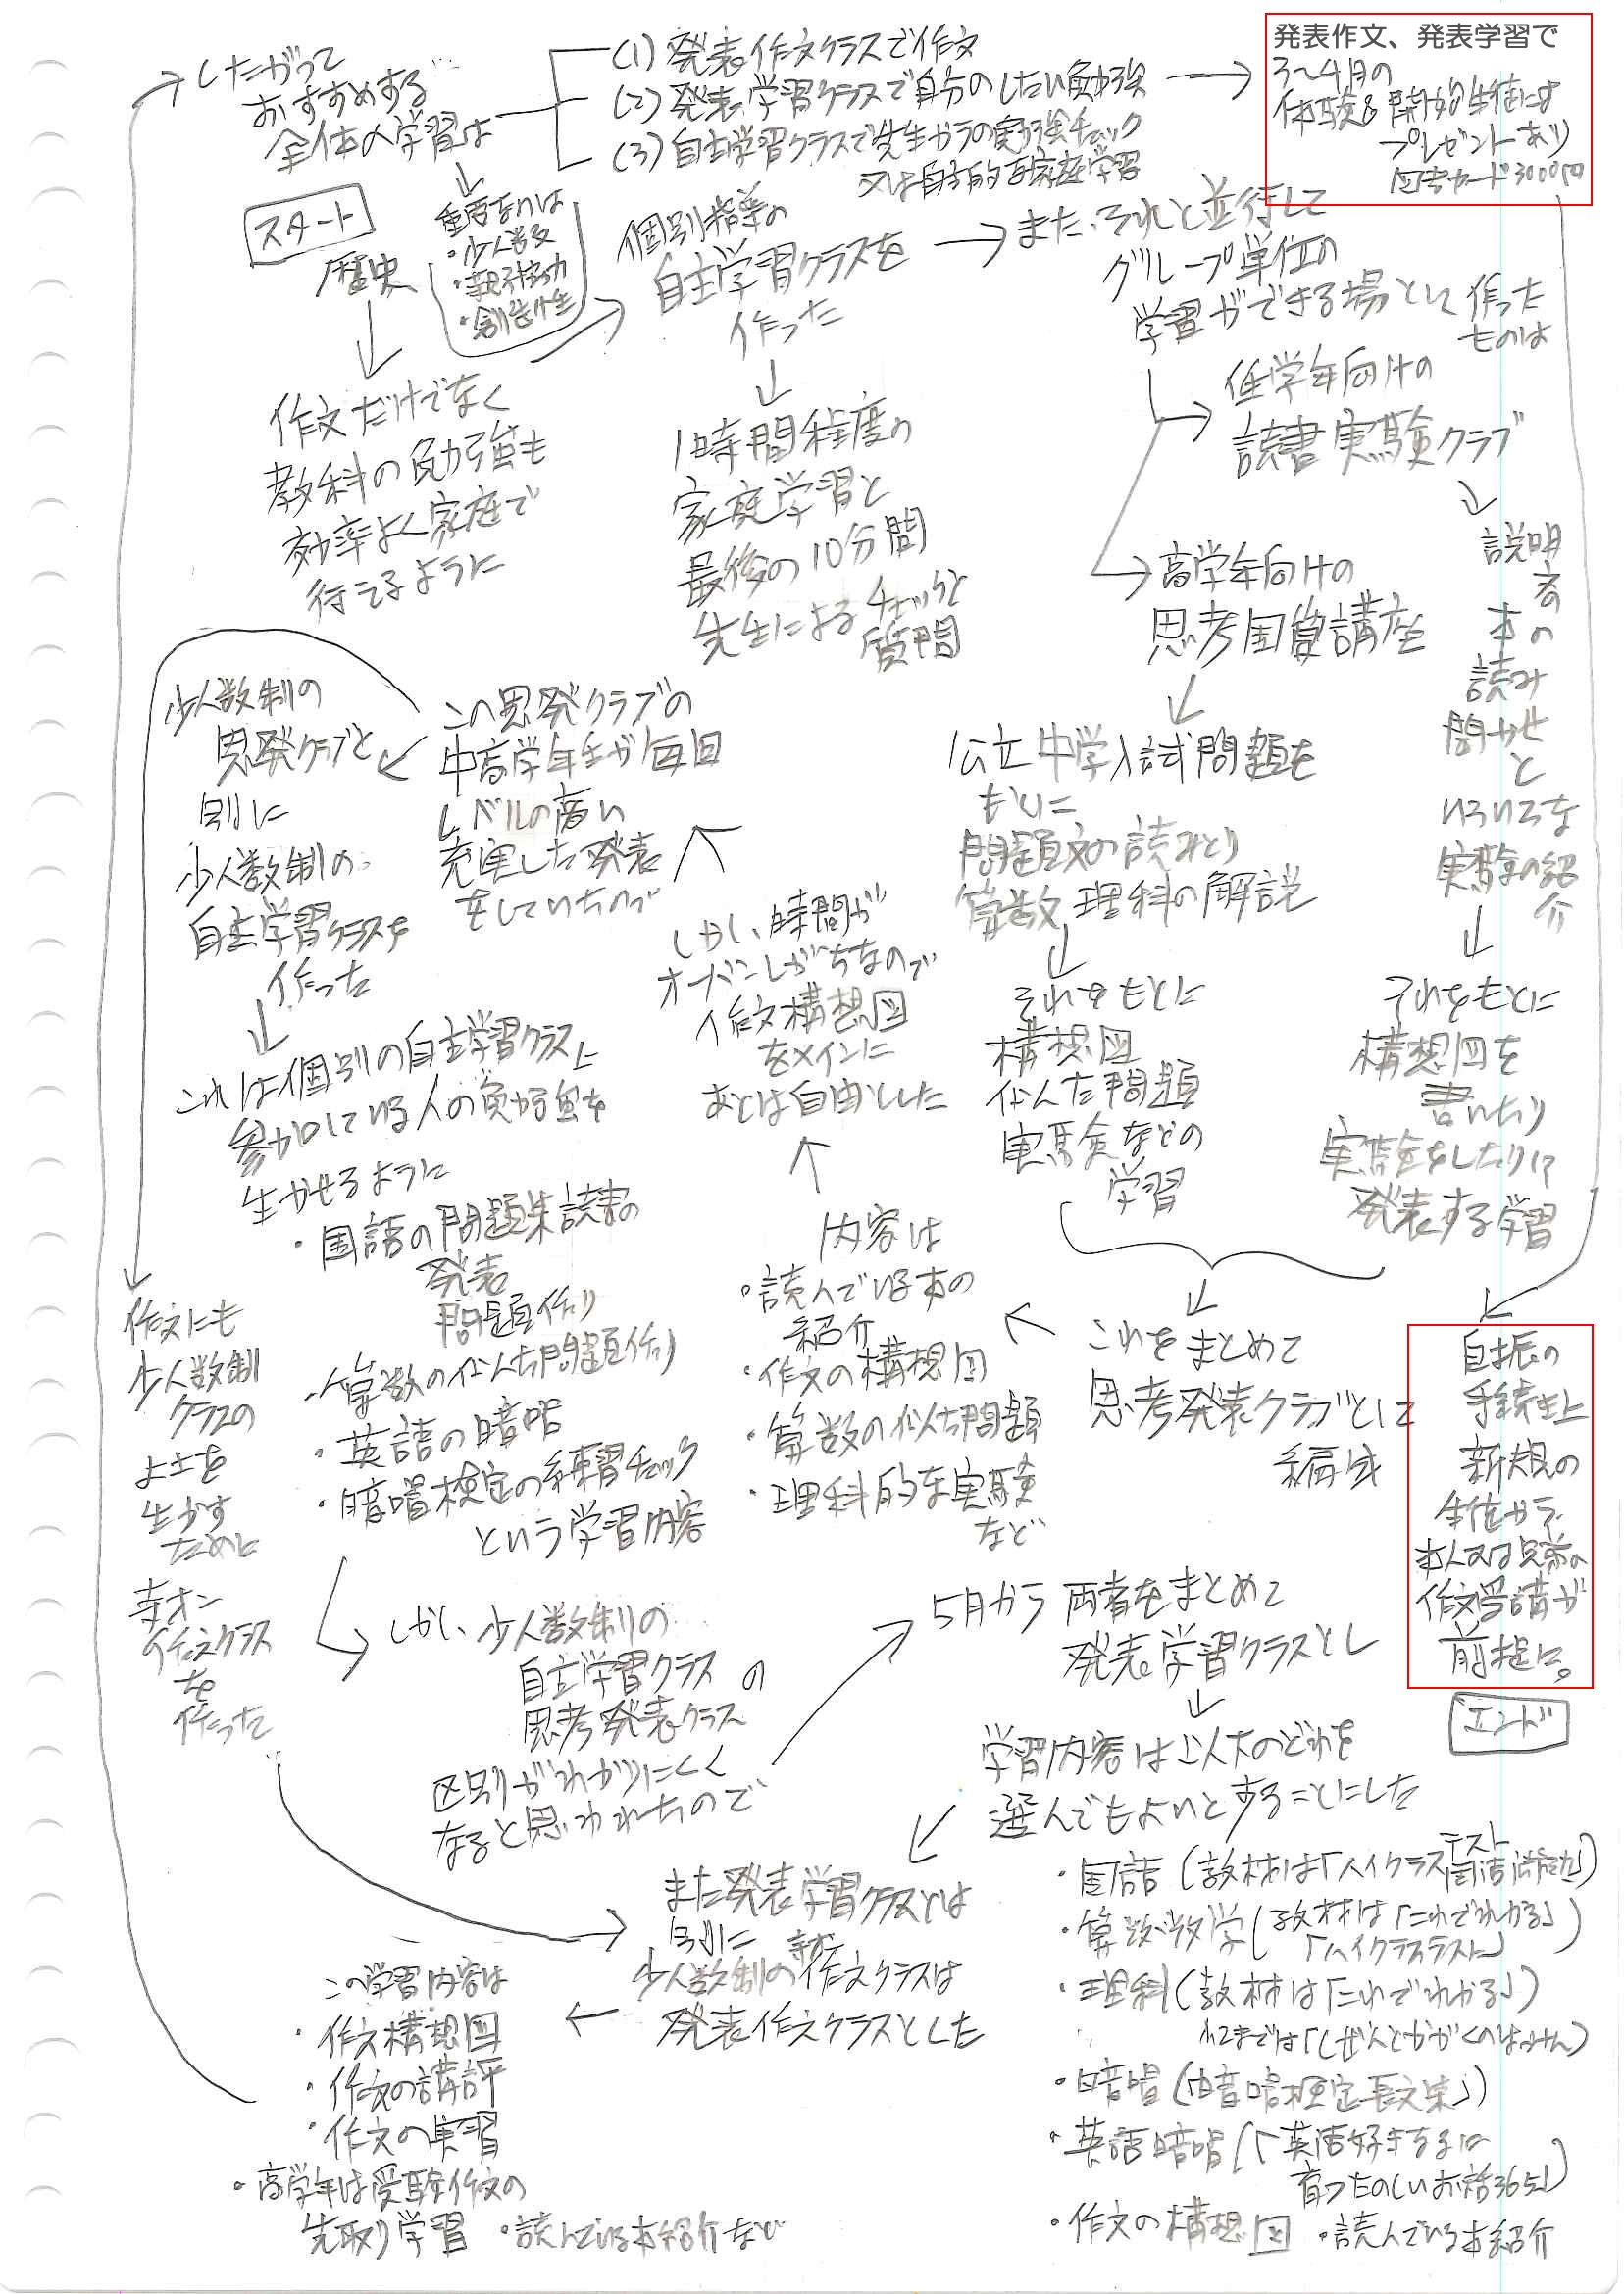 スタート
歴史
作文だけでなく
教科の勉強も
効率よく家庭で
行えるように
個別指導の
自主学習クラスを
作った
1時間程度の
家庭学習と
最後の10分間
先生によるチェックと
質問
また、それと並行して
グループ単位の
学習ができる場として作った
ものは
低学年向けの
読書実験クラブ
説明文の
本の
読み
聞かせ
と
いろいろな
実験の紹
介
それをもとに
構想図を
書いたり
実験をしたりして
発表する学習
高学年向けの
思考国算講座
公立中学入試問題を
もとに
問題文の読みとり
算数、理科の解説
それをもとに
構想図
似た問題
実験などの
学習
これをまとめて
思考発表クラブとして
編成
内容は
・読んでいる本の
紹介
・作文の構想図
・算数の似た問題
・理科的な実験
など
しかし、時間が
オーバーしがちなので
作文構想図
をメインに
あとは自由とした
この思発クラブの
中高学年生が毎回
レベルの高い
充実した発表
をしていたので
少人数制の
思発クラブと
別に
少人数制の
自主学習クラスを
作った
これは個別の自主学習クラスに
参加している人の勉強を
生かせるように
・国語の問題集読書の
発表
問題作り
・算数の似た問題作り
・英語の暗唱
・暗唱検定の練習チェック
という学習内容
しかし、少人数制の
自主学習クラス
の
思考発表クラス
区別がわかりにくく
なると思われたので
5月から両者をまとめて
発表学習クラスとし
学習内容は以下のどれを
選んでもよいとすることにした
・国語(教材は「ハイクラステスト国語読解力」)
・算数数学(教材は「これでわかる」
「ハイクラステスト」)
・理科(教材は「これでわかる」)
・暗唱(「暗唱検定長文集」)
・英語暗唱(「英語好きな子に
育つたのしいお話365」)
・作文の構想図 ・読んでいる本紹介
作文にも
少人数制
クラスの
よさを
生かす
ために
寺オン
作文クラス
を
作った
また発表学習クラスとは
別に
寺オン
少人数制の作文クラスは
発表作文クラスとした
この学習内容は
・作文構想図
・作文の講評
・作文の実習
・高学年は受験作文の
先取り学習 ・読んでいる本紹介など
したがって
おすすめする
全体の学習は
(1)発表作文クラスで作文
(2)発表学習クラスで自分のしたい勉強
(3)自主学習クラスで先生からの勉強チェック
又は自主的な家庭学習
重要なのは
・少人数
・親子協力
・創造性
発表作文、発表学習で
3〜4月の
体験&開始生徒には
プレゼントあり
図書カード3000円
自振の
手続き上
新規の
生徒から、
本人又は兄弟の
作文受講が
前提に。
エンド